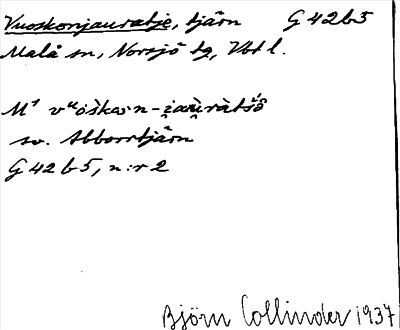 Vuoskonjauratje, tjärn G 42 b 5
Malå sn, Norsjö tg, Vbtl.
sv. Abborrtjärn
G 42 b 5, n:r 2
Björn Collinder 1937